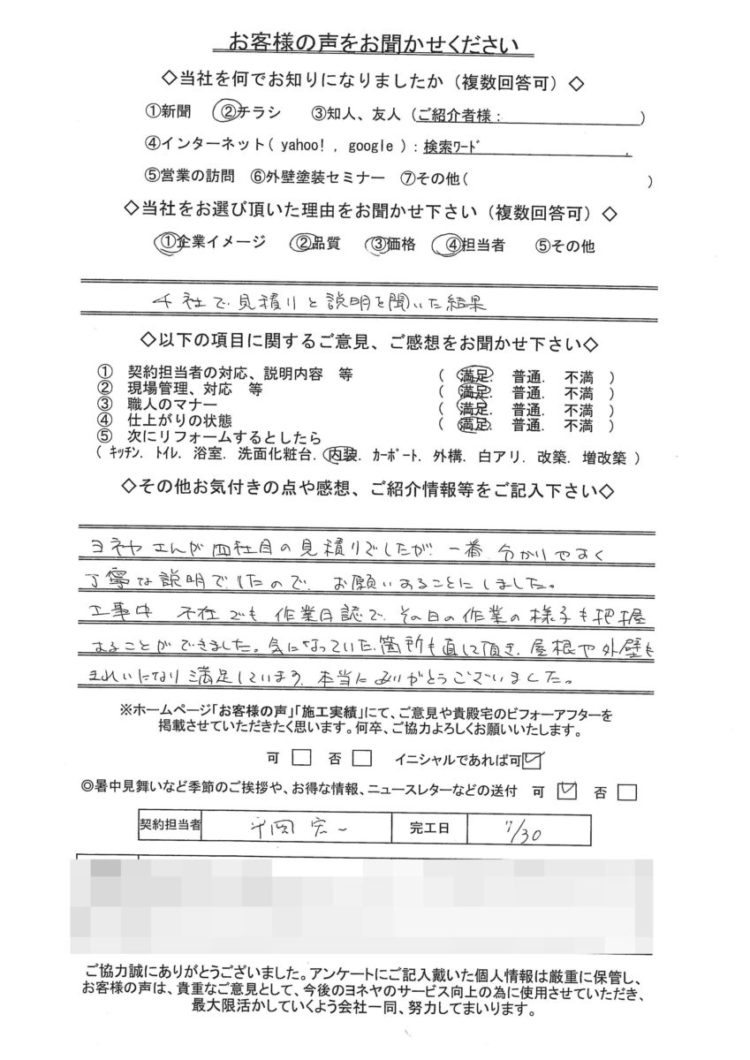 お客様の声をお聞かせください
◇当社を何でお知りになりましたか（複数回答可）◇
①新聞 ②チラシ ③知人、友人（ご紹介者様： ）
④インターネット( yahoo! , google )：検索ﾜｰﾄﾞ .
⑤営業の訪問 ⑥外壁塗装セミナー ⑦その他( )
◇当社をお選び頂いた理由をお聞かせ下さい（複数回答可）◇
①企業イメージ ②品質 ③価格 ④担当者 ⑤その他
社で見積りと説明を聞いた結果
◇以下の項目に関するご意見、ご感想をお聞かせ下さい◇
① 契約担当者の対応、説明内容 等 （ 満足. 普通. 不満 ）
② 現場管理、対応 等 （ 満足. 普通. 不満 ）
③ 職人のマナー （ 満足. 普通. 不満 ）
④ 仕上がりの状態 （ 満足. 普通. 不満 ）
⑤ 次にリフォームするとしたら
（ ｷｯﾁﾝ. ﾄｲﾚ. 浴室. 洗面化粧台. 内装. ｶｰﾎﾟｰﾄ. 外構. 白アリ. 改築. 増改築 ）
◇その他お気付きの点や感想、ご紹介情報等をご記入下さい◇
ヨネヤさんが四社目の見積りでしたが、一番、分かりやすく
丁寧な説明でしたので、お願いすることにしました。
工事中 不在でも作業日誌で、その日の作業の様子も把握
することができました。気になっていた箇所も直して頂き、屋根や外壁も
きれいになり満足しています。本当にありがとうございました。
※ホームページ「お客様の声」「施工実績」にて、ご意見や貴殿宅のビフォーアフターを
掲載させていただきたく思います。何卒、ご協力よろしくお願いいたします。
可 □ 否 □ イニシャルであれば可☑
◎暑中見舞いなど季節のご挨拶や、お得な情報、ニュースレターなどの送付 可 ☑ 否 □
契約担当者 平岡 宏一 完工日 7/30
ご協力誠にありがとうございました。アンケートにご記入戴いた個人情報は厳重に保管し、
お客様の声は、貴重なご意見として、今後のヨネヤのサービス向上の為に使用させていただき、
最大限活かしていくよう会社一同、努力してまいります。